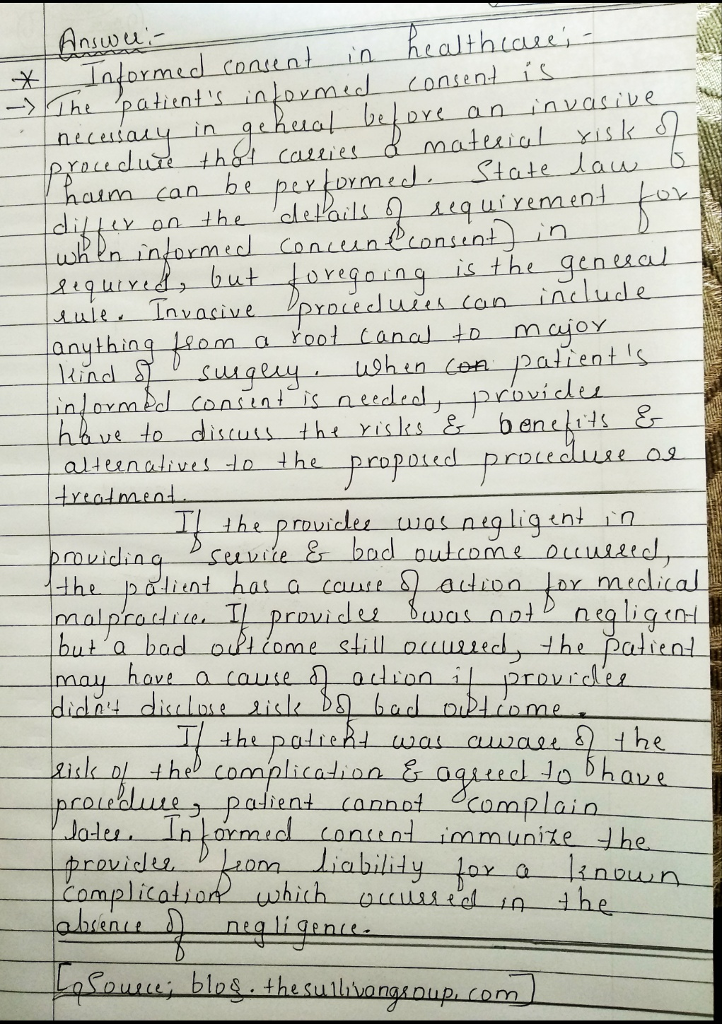 Answer:-
* Informed consent in healthcare;-
→ The patient's informed consent is
necessary in general before an invasive
procedure that carries a material risk of
harm can be performed. State law
differ on the details of requirement for
when informed concern (consent) in
required, but foregoing is the general
rule. Invasive procedures can include
anything from a root canal to major
kind of surgery. When patient's
informed consent is needed, provider
have to discuss the risks & benefits &
alternatives to the proposed procedure or
treatment.
If the provider was negligent in
providing service & bad outcome occurred,
the patient has a cause of action for medical
malpractice. If provider was not negligent
but a bad outcome still occurred, the patient
may have a cause of action if provider
didn't disclose risk of bad outcome.
If the patient was aware of the
risk of the complication & agreed to have
procedure, patient cannot complain
later. Informed consent immunize the
provider from liability for a known
complication which occurred in the
absence of negligence.
[Source; blog.thesullivangroup.com]